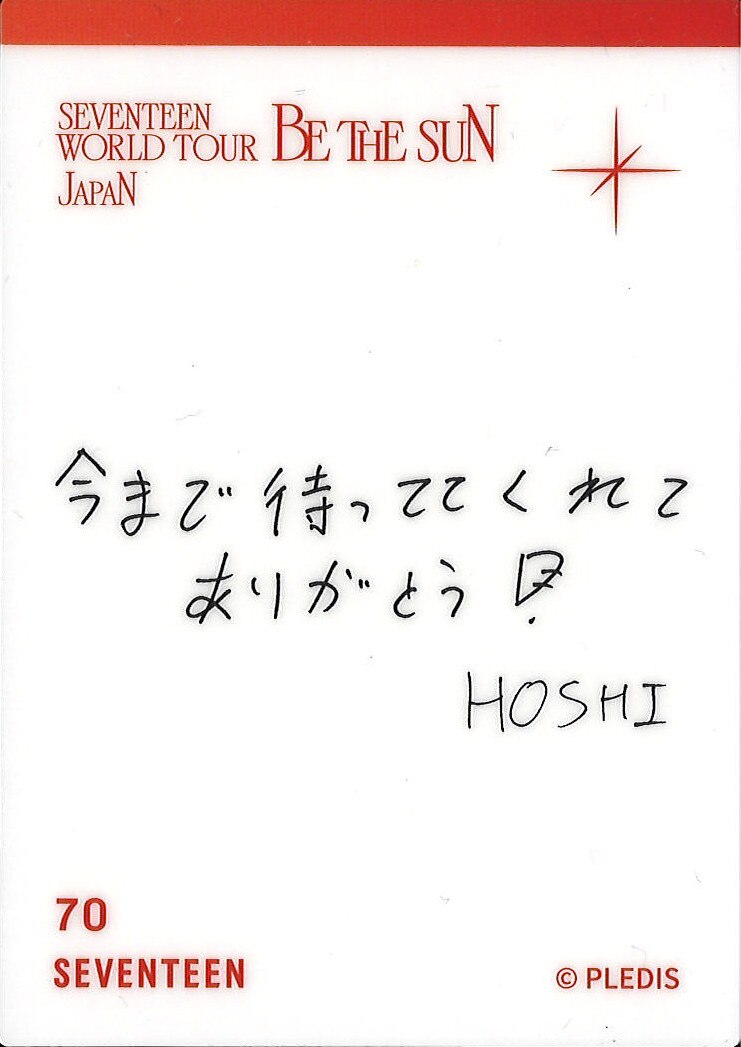 SEVENTEEN
WORLD TOUR BE THE SUN
JAPAN
今まで待っててくれて
ありがとう!
HOSHI
70
SEVENTEEN
© PLEDIS